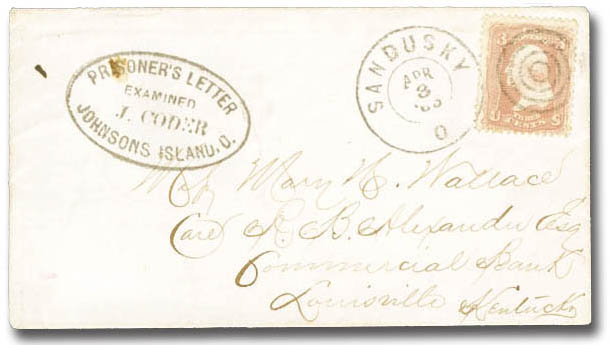 PRISONER'S LETTER
EXAMINED
J. CODER
JOHNSONS ISLAND. O.
SANDUSKY
APR
3
O
3
U S
THREE
CENTS
Mary H. Wallace
Care R. B. Alexander Esq
Commercial Bank
Louisville Kentucky